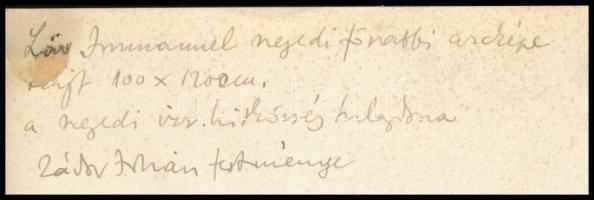 Löw Immanuel szegedi főrabbi arcképe
100 x 120 cm.
a szegedi izr. hitközség tulajdona
Zádor István festménye